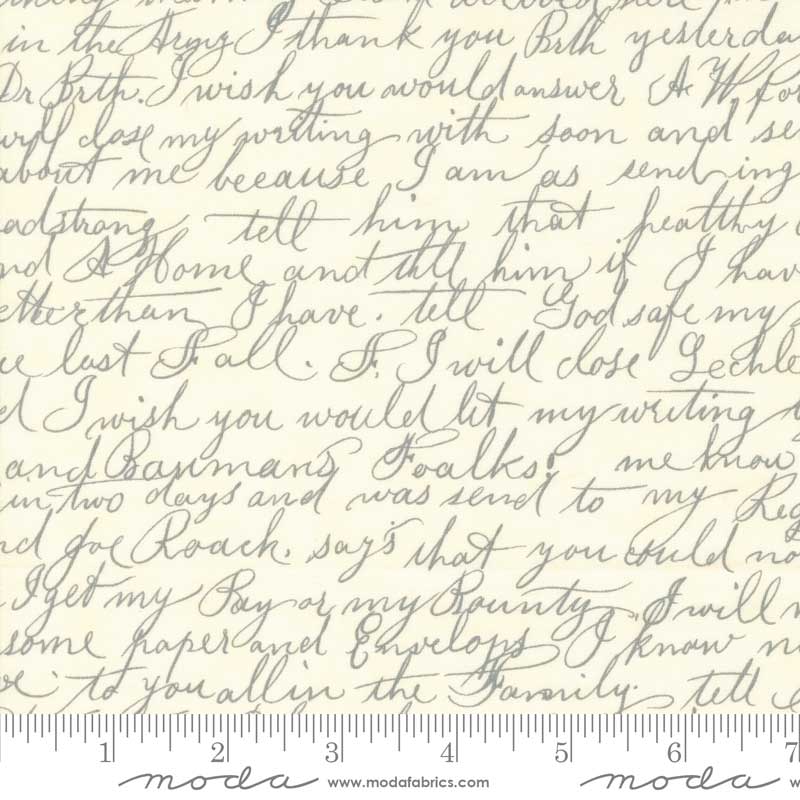 in the Army I thank you Brth yesterda
Dr Brth. I wish you would answer A W. for
will close my writing with soon and se
about me because I am as sending
adstrong tell him that healthy
nd A Home and tell him if I hav
etter than I have. tell God safe my
ue last Fall. F. I will close Lechle
d I wish you would let my writing
and Bauman's Foalks. me know
in two days and was send to my Reg
nd Joe Roack. say's that you could no
I get my Pay or my Bounty. I will
some paper and Envelops I know n
to you all in the Family. tell
1 2 3 4 5 6 7
moda www.modafabrics.com moda w